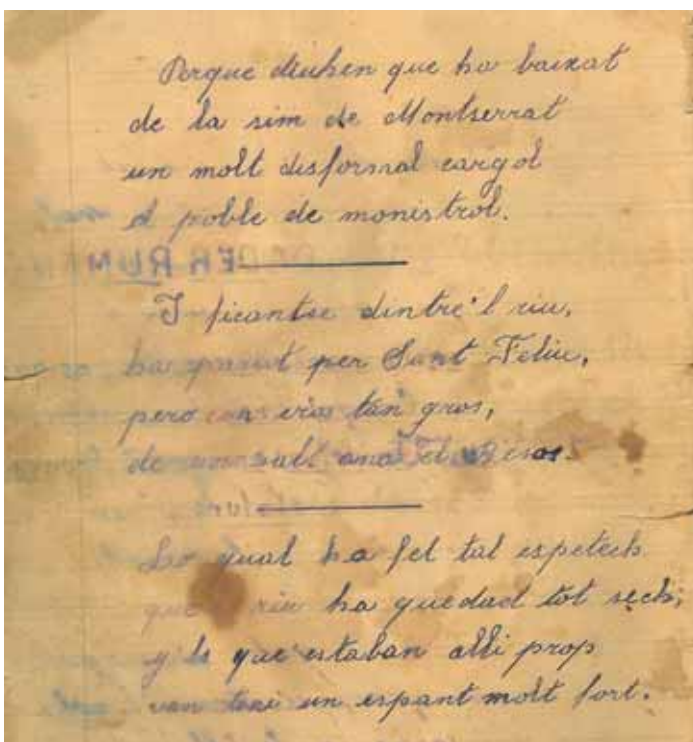 Porque diuhen que ha baixat
de la sim de Montserrat
un molt disformal cargol
al poble de monistrol.
I ficantse dintre'l riu,
ha passat per Sant Feliu,
pero com era tan gros,
de un salt ana
Lo qual ha fet tal espetech
que riu ha quedad tot sech;
y'ls que estaban alli prop
van teni un espant molt fort.